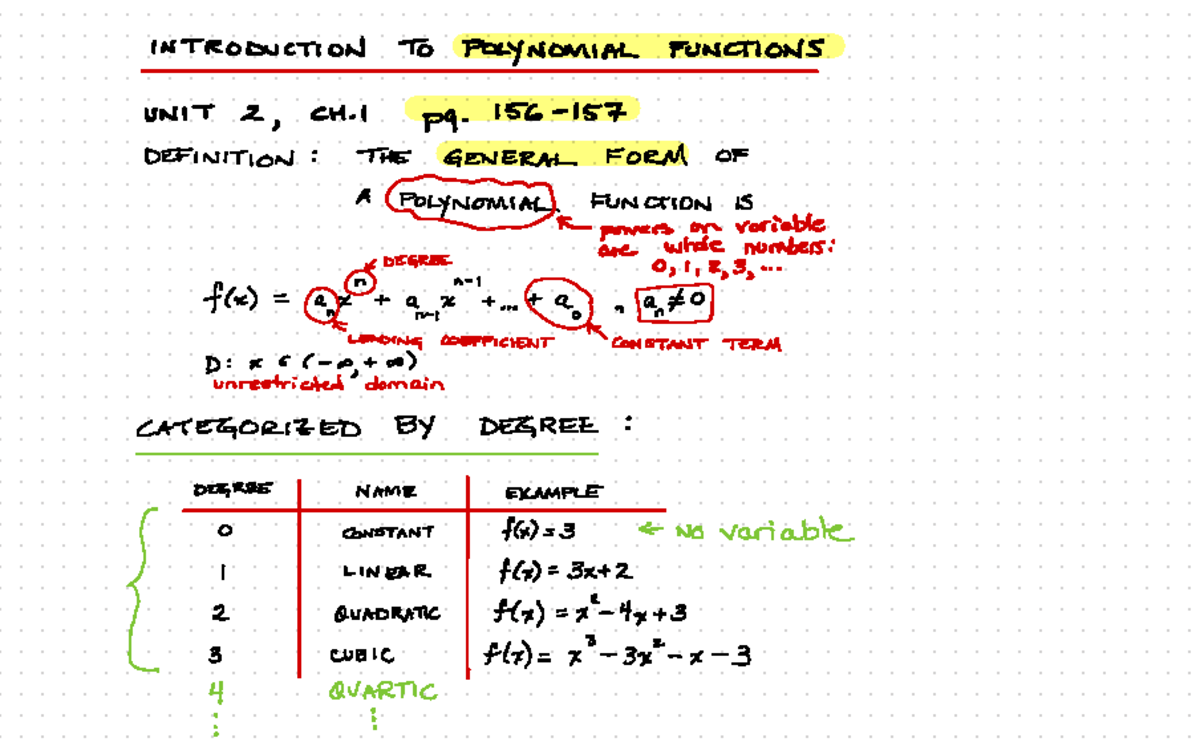 INTRODUCTION TO POLYNOMIAL FUNCTIONS
UNIT 2, CH.1 pg. 156-157
DEFINITION: THE GENERAL FORM OF
A POLYNOMIAL FUNCTION IS
powers on variable
are whole numbers:
0, 1, 2, 3, ...
DEGREE
f(x) = aₙxⁿ + aₙ₋₁xⁿ⁻¹ + ... + a₀ , aₙ ≠ 0
LEADING COEFFICIENT CONSTANT TERM
D: x ∈ (-∞, +∞)
unrestricted domain
CATEGORIZED BY DEGREE:
DEGREE NAME EXAMPLE
0 CONSTANT f(x) = 3 ← No variable
1 LINEAR f(x) = 3x+2
2 QUADRATIC f(x) = x² - 4x + 3
3 CUBIC f(x) = x³ - 3x² - x - 3
4 QUARTIC
⋮ ⋮